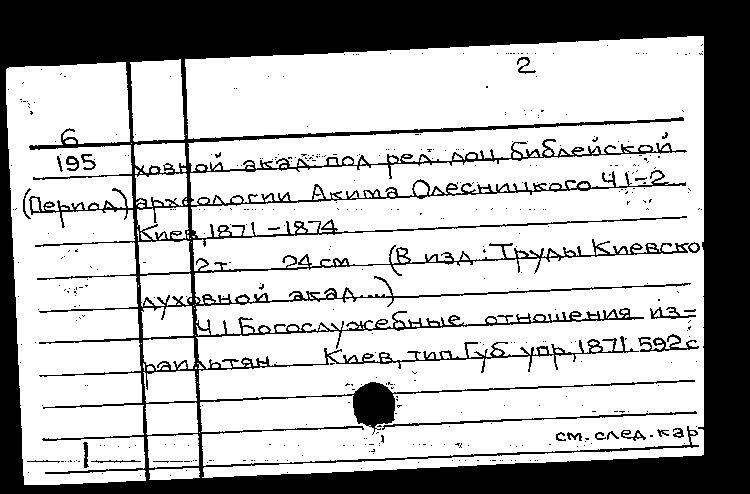 2
6
195 ховной акад. под ред. доц. библейской
(Период) археологии Акима Олесницкого Ч.1-2
Киев, 1871-1874
2 т. 24 см (В изд.: Труды Киевско
духовной акад....)
Ч.1 Богослужебные отношения из=
раильтян. Киев, тип. Губ. упр., 1871. 592 с
1
см. след. кар